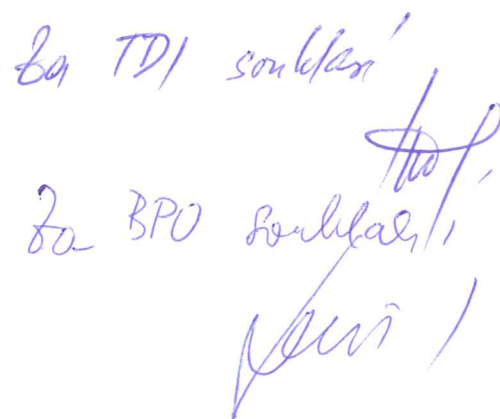 Za TDI souhlasí
Za BPO souhlasí